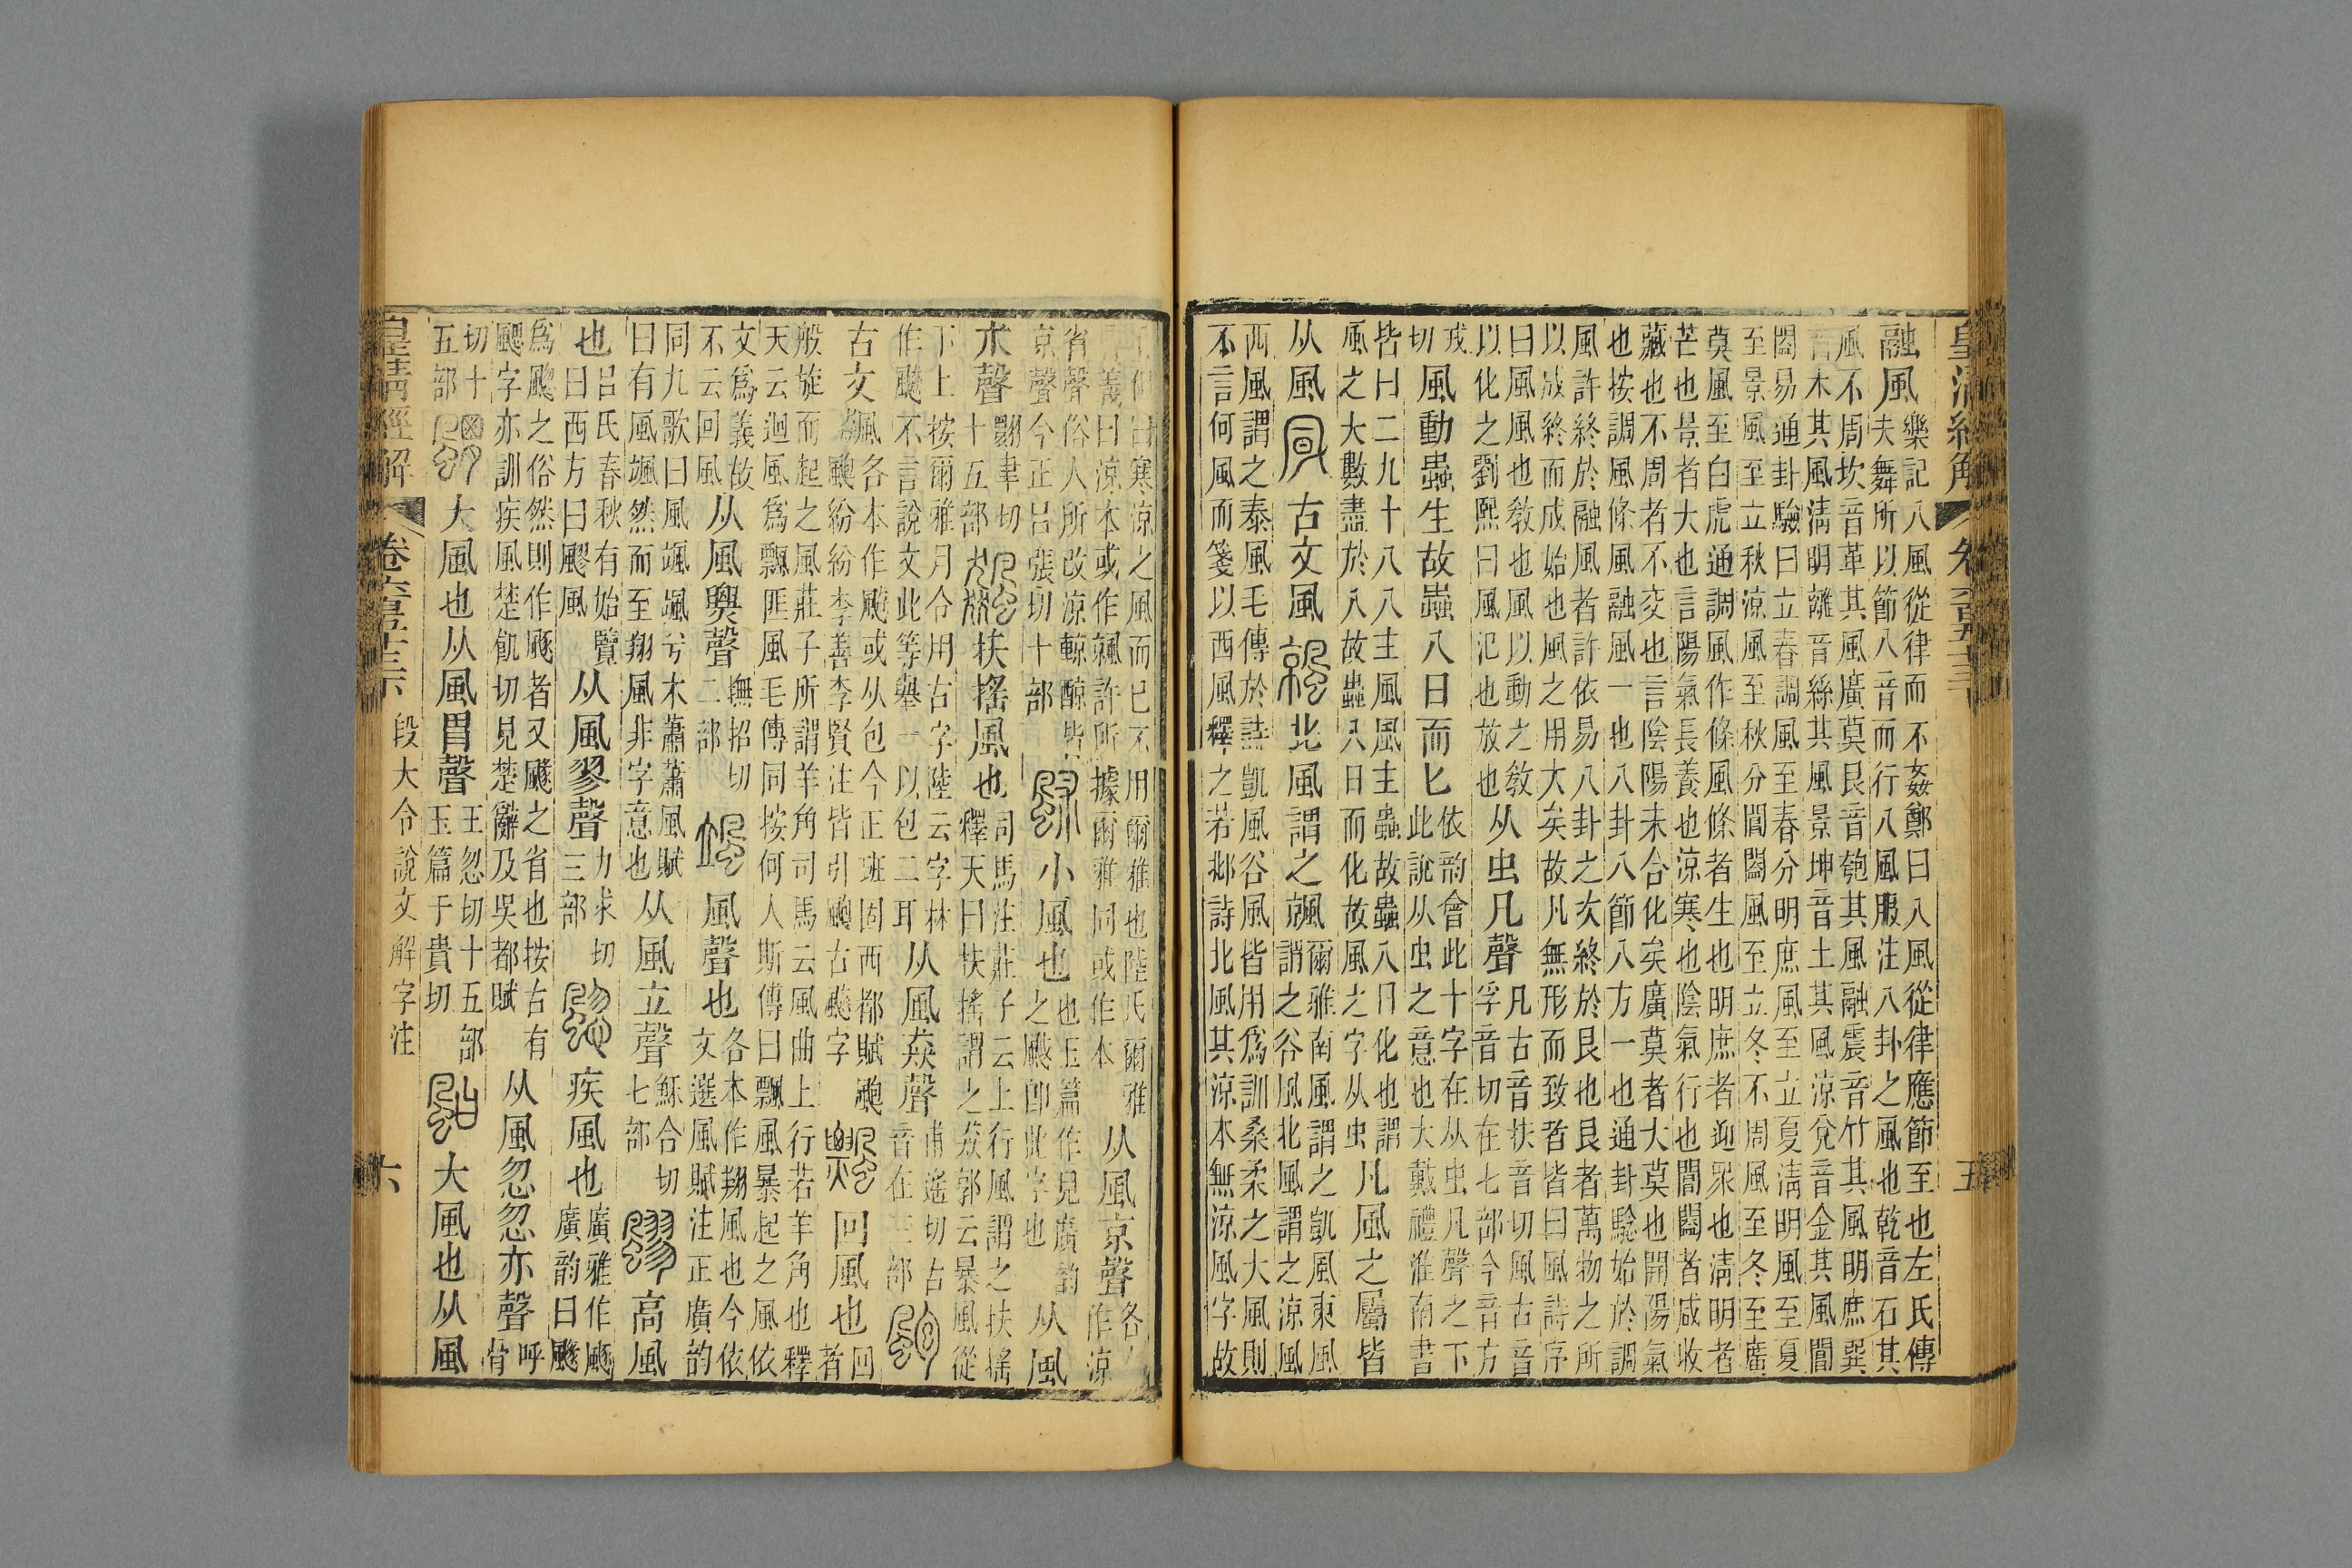 皇清經解 卷六百五十三下 五
融風
樂記八風從律而不姦鄭曰八風從律應節至也左氏傳
夫舞所以節八音而行八風服注八卦之風也乾音石其
風不周坎音革其風廣莫艮音匏其風融震音竹其風明庶巽
音木其風清明離音絲其風景坤音土其風涼兌音金其風閶
闔易通卦驗曰立春調風至春分明庶風至立夏清明風至夏
至景風至立秋涼風至秋分閶闔風至立冬不周風至冬至廣
莫風至白虎通調風作條風條者生也明庶者迎眾也清明者
芒也景者大也言陽氣長養也涼寒也陰氣行也閶闔者咸收
藏也不周者不交也言陰陽未合化矣廣莫者大莫也開陽氣
也按調風條風融風一也八卦八節八方一也通卦驗始於調
風許終於融風者許依易八卦之次終於艮也艮者萬物之所
以成終而成始也風之用大矣故凡無形而致者皆曰風詩序
曰風風也敎也風以動之敎
以化之劉熙曰風氾也放也
从虫凡聲
凡古音扶音切風古音
孚音切在七部今音方
戎
切
風動蟲生故蟲八日而匕
依韵會此十字在从虫凡聲之下
此說从虫之意也大戴禮淮南書
皆曰二九十八八主風風主蟲故蟲八日化也謂
風之大數盡於八故蟲八日而化故風之字从虫
凡風之屬皆
从風 古文風 北風謂之𩗬
爾雅南風謂之凱風東風
謂之谷風北風謂之涼風
西風謂之泰風毛傳於詩凱風谷風皆用爲訓桑柔之大風則
不言何風而箋以西風釋之若邶詩北風其涼本無涼風字故
但曰寒涼之風而已不用爾雅也陸氏爾雅
義曰涼本或作𩗬許所據爾雅同或作本
从風京聲
各
作涼
省聲俗人所改涼輬皆
京聲今正呂張切十部
小風也
也玉篇作見廣韵
之颰卽此字也
从風
朮聲
翾聿切
十五部
扶搖風也
司馬注莊子云上行風謂之扶搖
釋天曰扶搖謂之猋郭云暴風從
下上按爾雅月令用古字陸云字林
作飇不言說文此等舉一以包二耳
从風猋聲
甫遙切古
音在三部
古文飆
各本作颮或从包今正班固西都賦颮
颮紛紛李善李賢注皆引颮古飆字
回風也
回
者
般旋而起之風莊子所謂羊角司馬云風曲上行若羊角也釋
天云迴風爲飄匪風毛傳同按何人斯傳曰飄風暴起之風依
文爲義故
不云回風
从風㶾聲
撫招切
二部
風聲也
各本作翔風也今依
文選風賦注正廣韵
同九歌曰風颯颯兮木蕭蕭風賦
曰有風颯然而至翔風非字意也
从風立聲
穌合切
七部
高風
也
呂氏春秋有始覽
曰西方曰飂風
从風翏聲
力求切
三部
疾風也
廣雅作䬍
廣韵曰䬍
爲颮之俗然則作䬍者又飇之省也按古有
颮字亦訓疾風楚飢切見楚辭及吳都賦
从風忽忽亦聲
呼
骨
切十
五部
大風也从風胃聲
王忽切十五部
玉篇于貴切
大風也从風
皇清經解 卷六百五十三下 段大令說文解字注 六